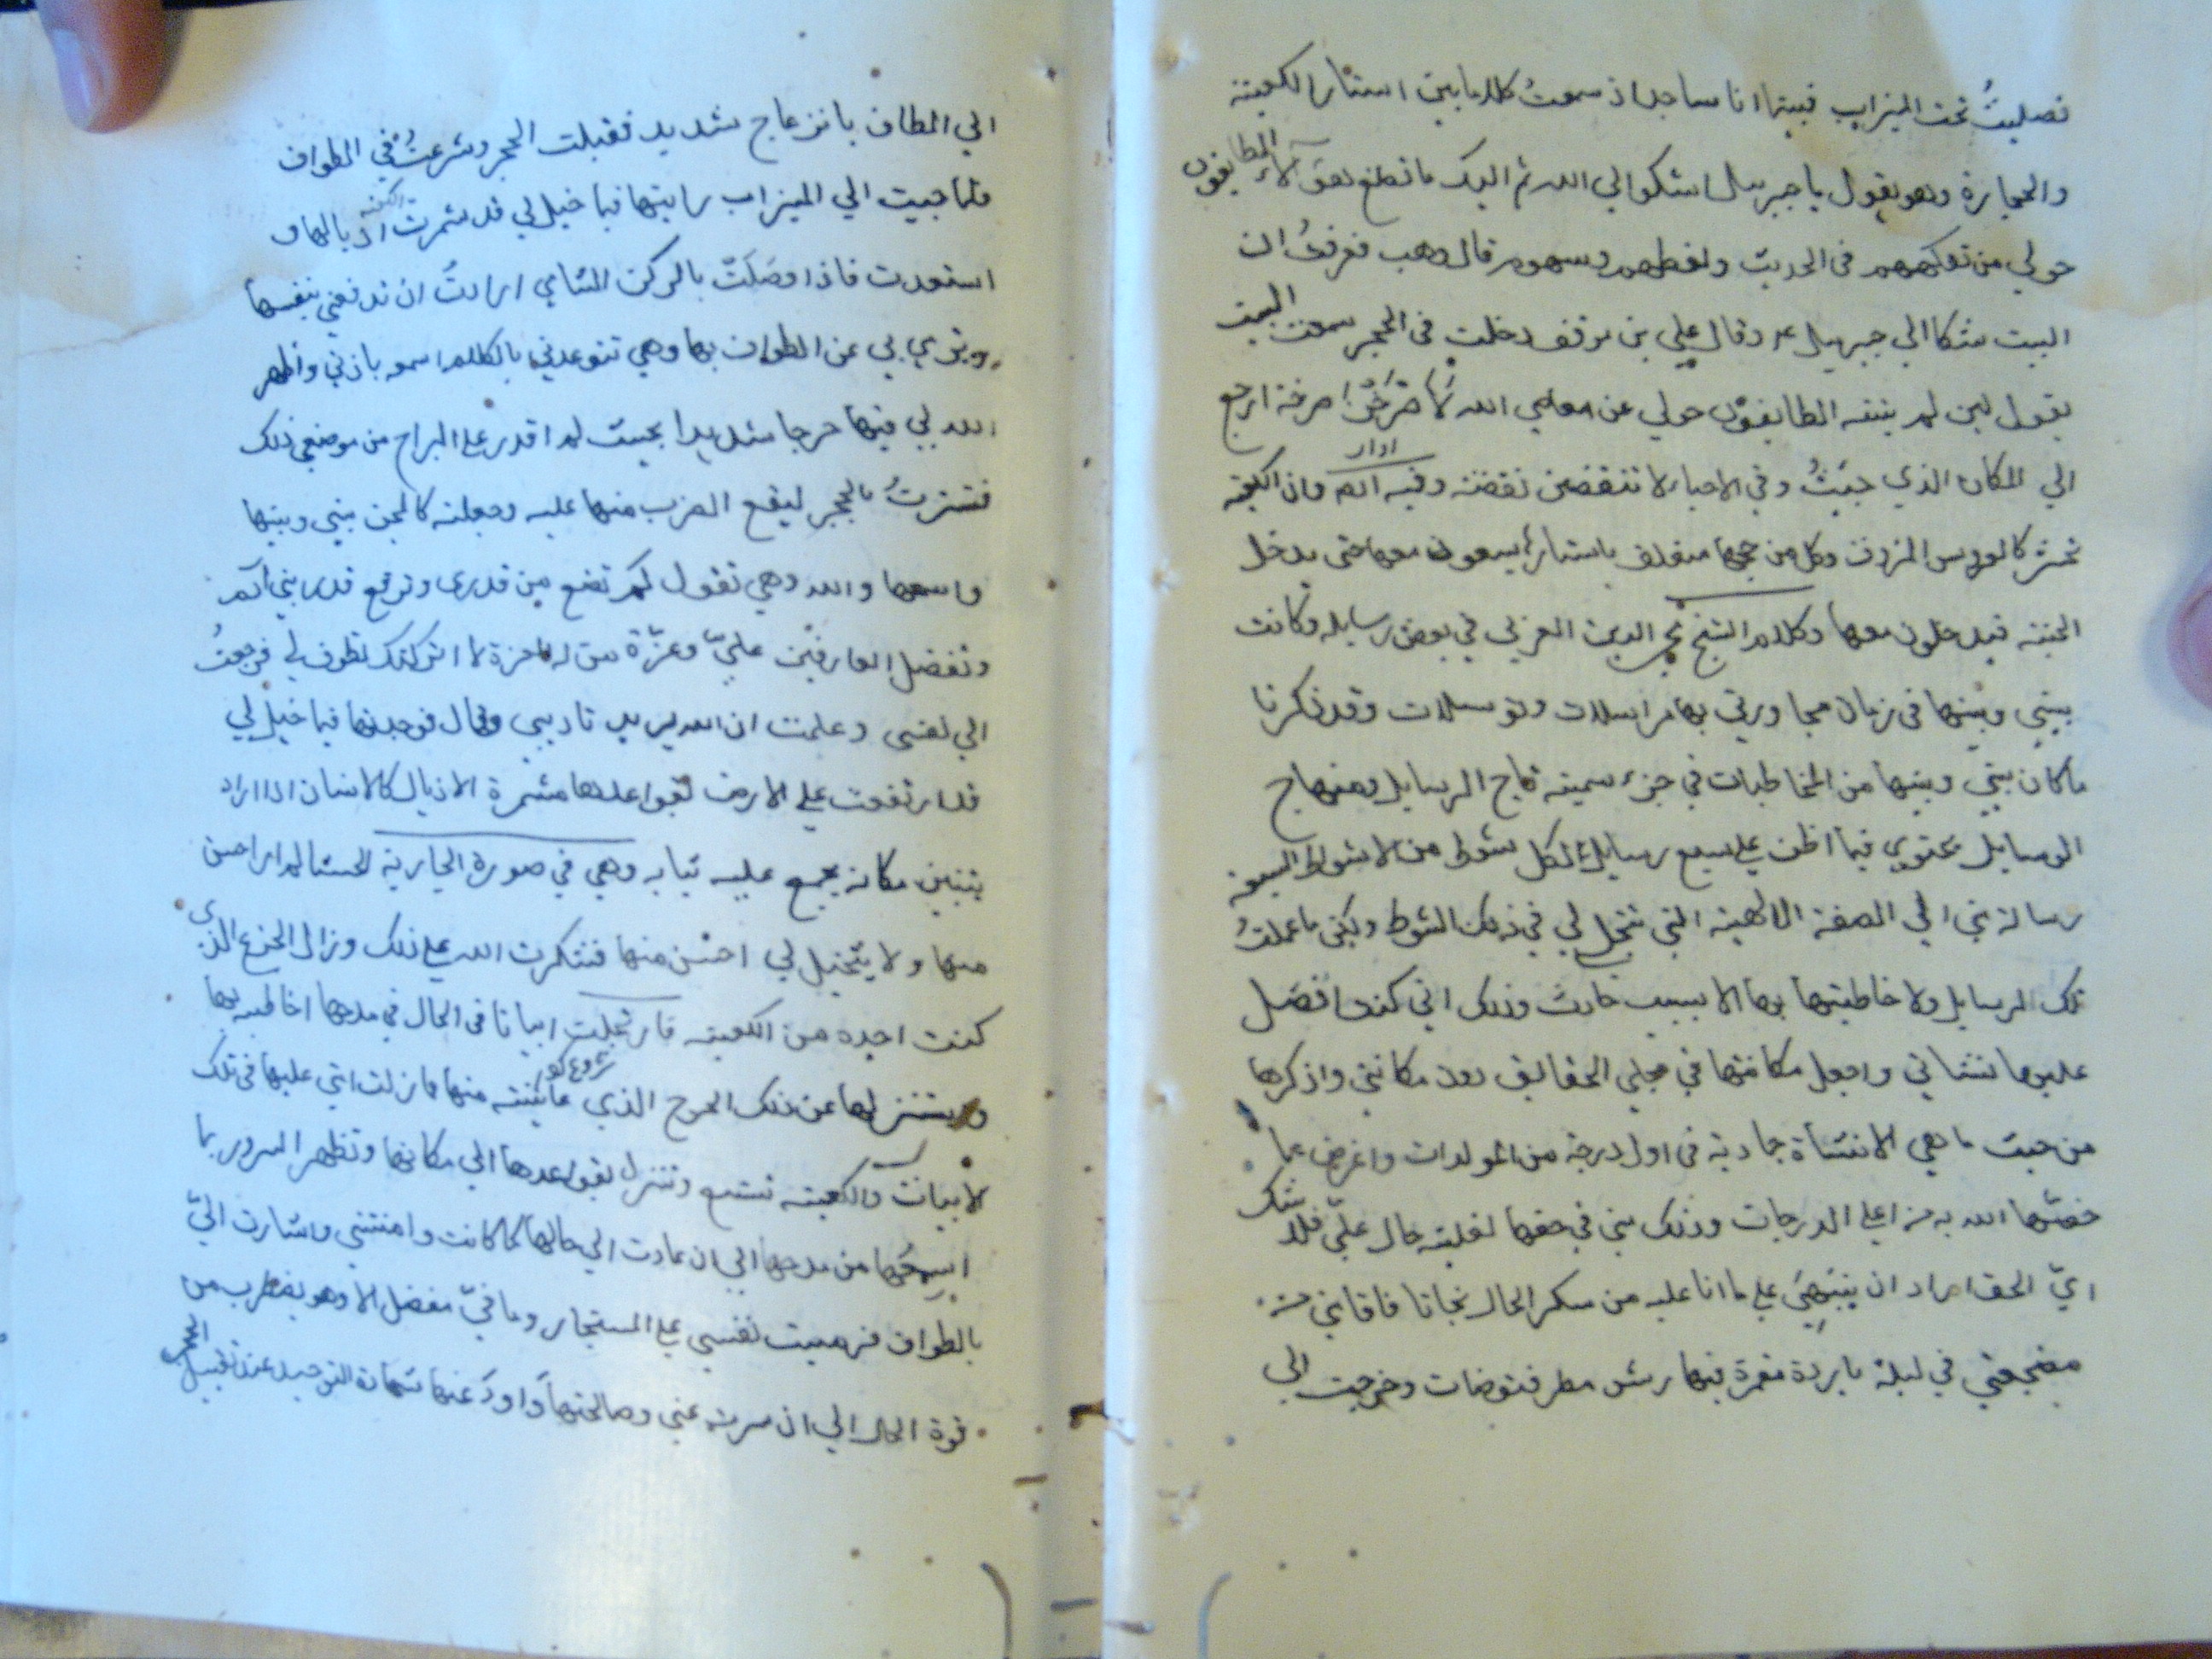 فصليتُ تحت الميزاب فبينا انا ساجد اذ سمعتُ كلاما بين استار الكعبة
والحجارة وهو يقول يا جبريل اشكوا الي الله ثم اليك ما تصنع هؤلاء الطايفون
حولي من تفكههم في الحديث ولغطهم وسهوهم قال وهب فعرفتُ ان
البيت شكا الي جبريل عم وقال علي بن موفف دخلت في الحجر سمعت البيت
يقول لين لم ينته الطايفون حولي عن معاصي الله لاصرخنّ صرخة ارجع
الي المكان الذي جيتُ وفي الاخبار لا تنقضين نقضته وفيه ان الكعبة
تحشر كالعروس المزفوف وكل من حجها متعلق باستارها يسعون معها حتى يدخل
الجنة فيدخلون معها وكلام الشيخ محي الدين العربي في بعض رسايله وكانت
بيني وبينها في زمان مجاورتي بها مراسلات وتوسلات وقد ذكرنا
ما كان بيني وبينها من المخاطبات في جزء سميته تاج الرسايل ومنهاج
الوسايل يحتوي فيما اظن علي سبع رسايل لكل شوط من الاشواط السبعة
رسالة مني الي الصفة الالهية التي تتجلى لي في ذلك الشوط ولكني ما عملتُ
تلك الرسايل ولا خاطبتها بها الا بسبب حادث وذلك اني كنت افضل
عليها نشاتي واجعل مكانتها في مجلي الحقايق دون مكانتي واذكرها
من حيث ما هي الا نشاة جمادية في اول درجة من المولدات واعرض عما
خصّها الله به من اعلي الدرجات وذلك مني في حقها لغلبة حال عليّ فلا شك
ايّ الحق اراد ان ينبهني علي ما انا عليه من سكر الحال نجانا فاقامني من
مضجعي في ليلة باردة مقمرة فيها رش مطر فتوضات وخرجت الي
الي المطاف بانزعاج شديد فقبلت الحجر وشرعتُ في الطواف
فلما جيت الي الميزاب رايتها فيما خيل لي قد شمرت اذيالها و
استعدت فاذا وصَلَتْ بالركن الشامي ارادتْ ان تدفعني بنفسها
وترمي بي عن الطواف بها وهي تتوعدني بالكلام اسمعه باذني واظهر
الله لي فيها حرجا شديدا بحيث لم اقدر علي البراح من موضعي ذلك
فتسترتُ بالحجر ليقع الضرب منها عليه وجعلته كالمجن بيني وبينها
واسمعها والله وهي تقول لي كم تضع من قدري وترفع قدر بني آدم
وتفضل العارفين عليّ وعزّة من له العزة لا تركتك تطوف لي فرجعتُ
الي نفسي وعلمت ان الله يريد تاديبي وقال فوجدتها فيما خيل لي
قد ارتفعت علي الارض بقواعدها مشمرة الاذيال كالانسان اذا اراد
يثبن مكانه يجمع عليه ثيابه وهي في صورة الجارية الحسنا لم ار احسن
منها ولا يتخيل لي احسن منها فشكرت الله علي ذلك وزال الجزع الذي
كنت اجده من الكعبة فارتجلت ابياتا في الحال في مدحها اخاطبه بها
واستنزلها عن ذلك الحرج الذي عاينته منها فما زلت اثني عليها في تلك
الابيات والكعبة تتسع وتنزل بقواعدها الي مكانها وتظهر السرور بما
اسمعُها من مدحها الي ان عادت الي حالها كما كانت وامنتني واشارت اليّ
بالطواف فرميت نفسي علي المستجار وما فيّ مفصل الا وهو يضطرب من
قوة الحال الي ان سري عني وصالحتها واودعتها شهادة التوحيد عند تقبيل الحجر